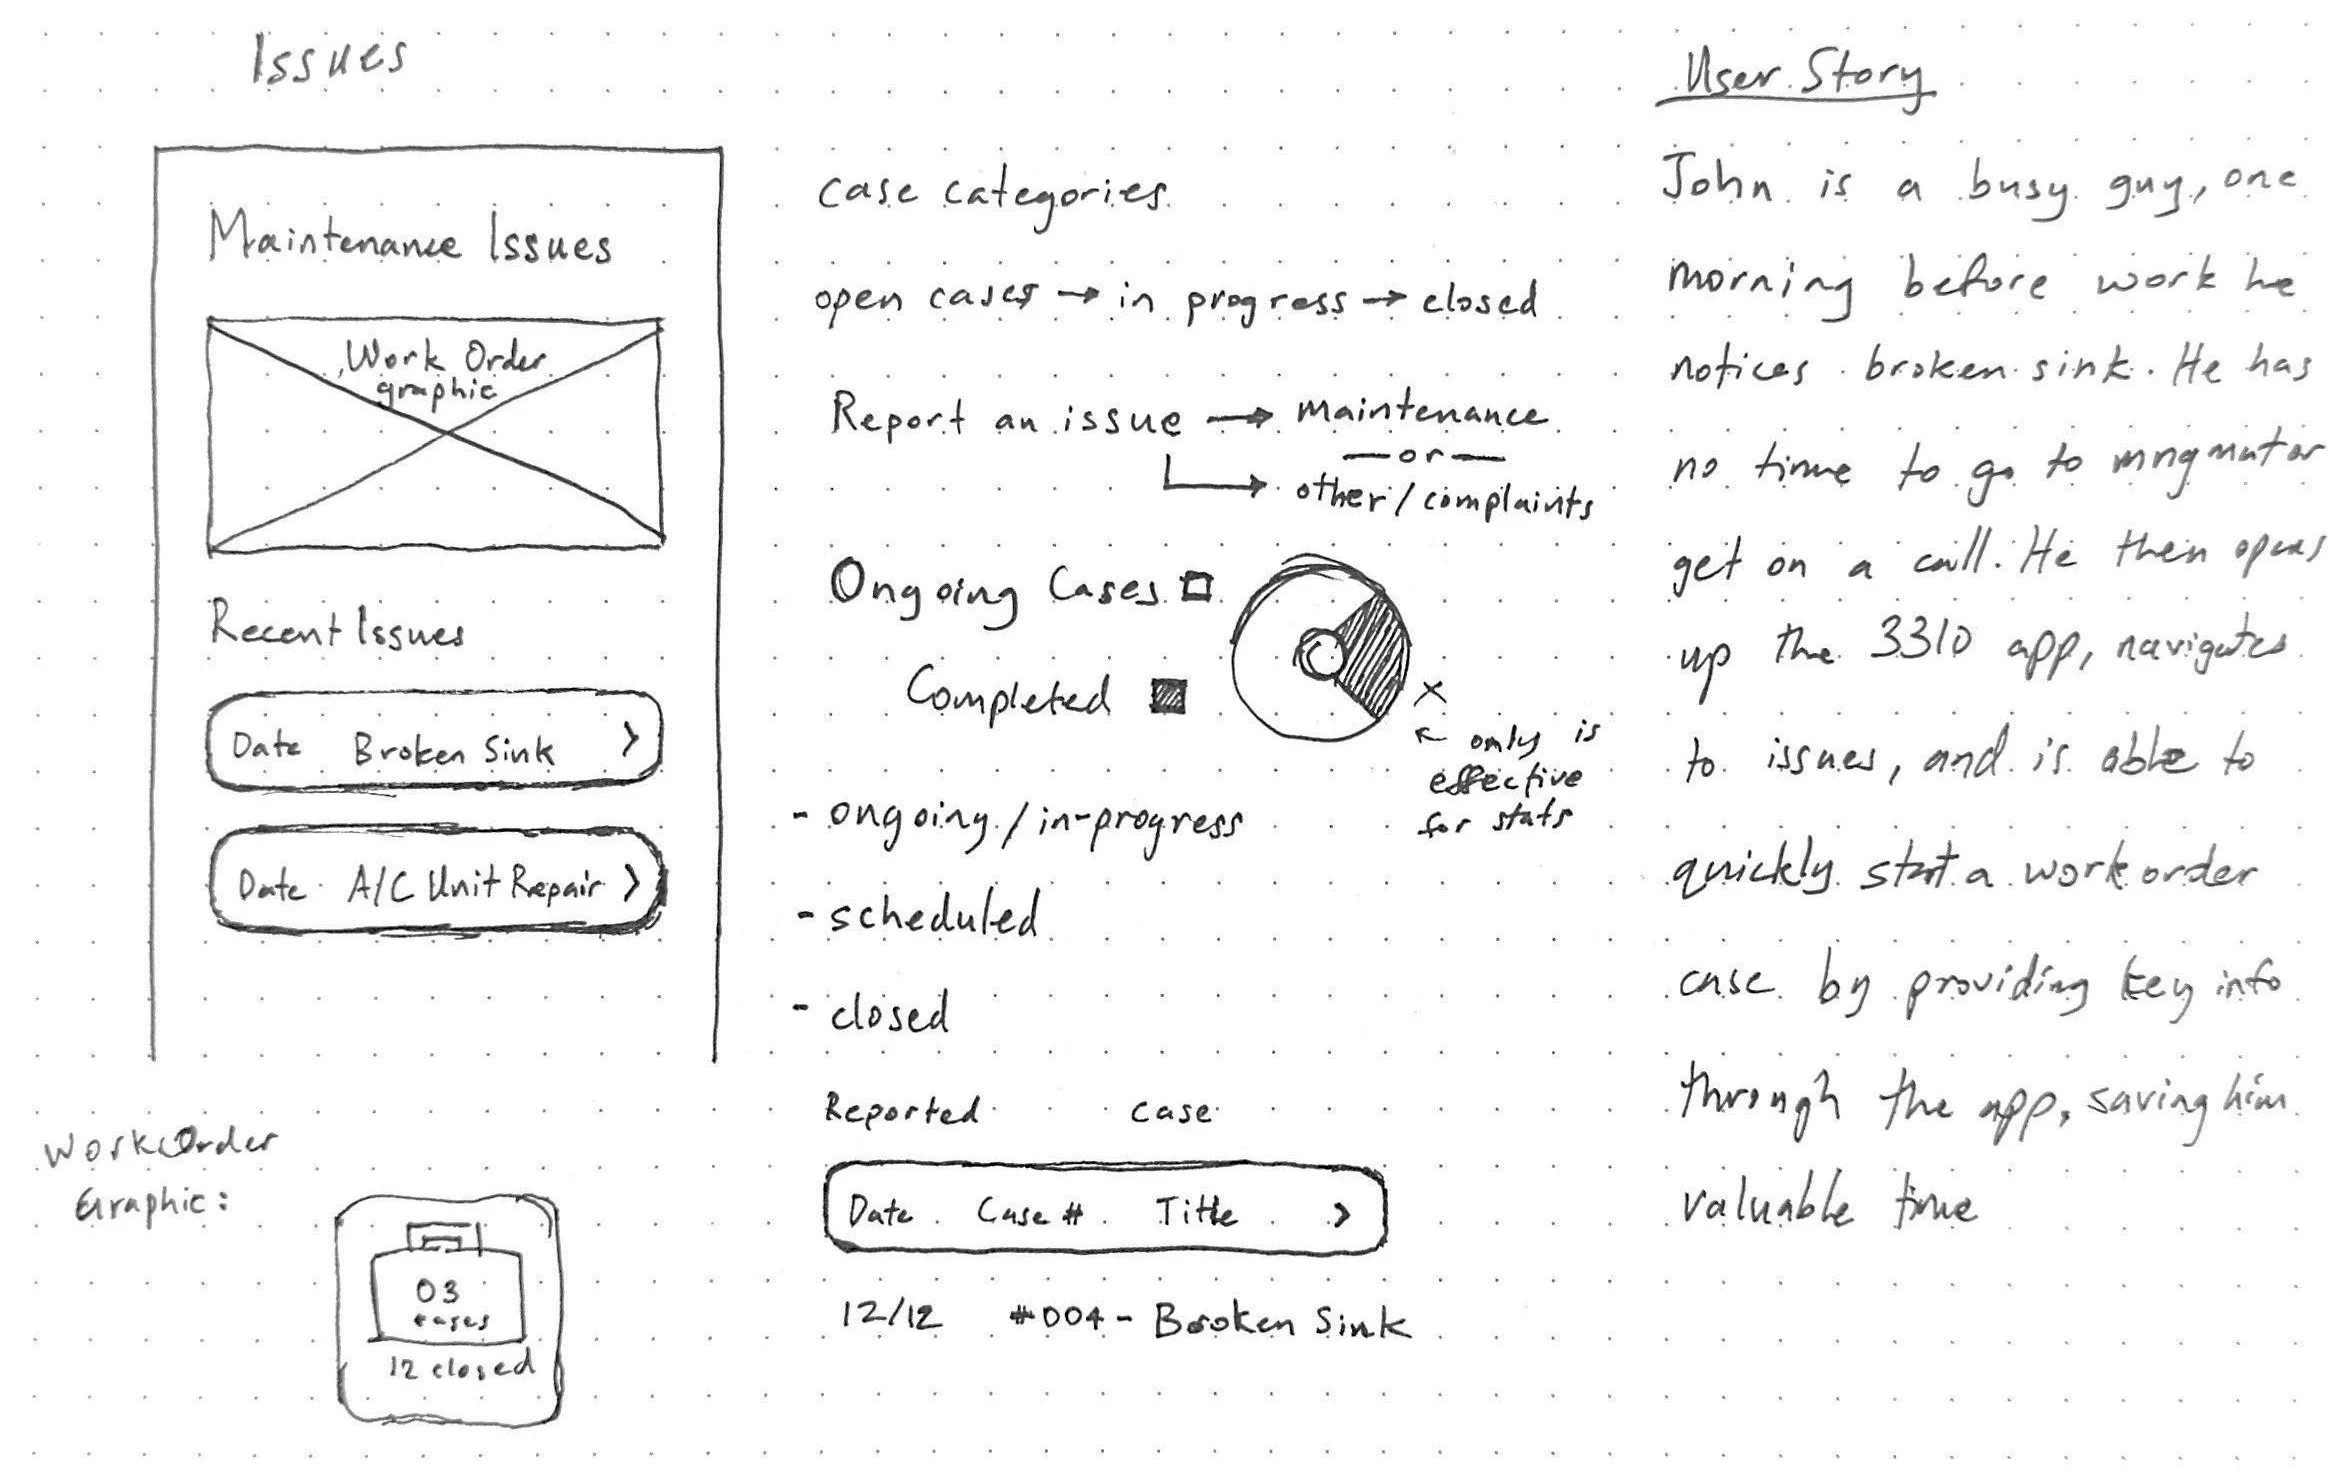 Issues
Maintenance Issues
Work Order
graphic
Recent Issues
Date Broken Sink >
Date A/C Unit Repair >
Work Order
Graphic:
03
cases
12 closed
case categories
open cases → in progress → closed
Report an issue → maintenance
— or —
other / complaints
Ongoing Cases
Completed
x
← only is
effective
for stats
- ongoing / in-progress
- scheduled
- closed
Reported case
Date Case # Title >
12/12 #004 - Broken Sink
User Story
John is a busy guy, one
morning before work he
notices broken sink. He has
no time to go to mngmnt or
get on a call. He then opens
up the 3310 app, navigates
to issues, and is able to
quickly start a work order
case by providing key info
through the app, saving him
valuable time